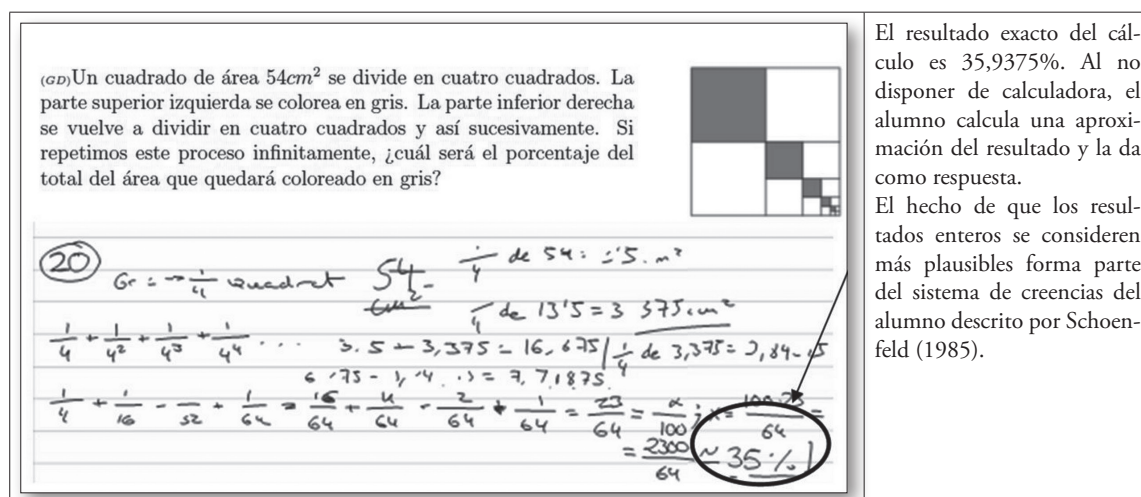 (GD)Un cuadrado de área 54cm² se divide en cuatro cuadrados. La
parte superior izquierda se colorea en gris. La parte inferior derecha
se vuelve a dividir en cuatro cuadrados y así sucesivamente. Si
repetimos este proceso infinitamente, ¿cuál será el porcentaje del
total del área que quedará coloreado en gris?
20
1/4 quadrat 54 cm² 1/4 de 54
de 13'5 = 3 375 cm²
1/4 + 1/4² + 1/4³ + 1/4⁴ ... 3,375 = 16,675 | 1/4 de 3,375 =
7,71875
1/4 + 1/16 - 1/64 = 16/64 + 4/64 - 2/64 + 1/64 = 23/64 = x/100 ; 64 =
= 2300/64 ~ 35 %
El resultado exacto del cál-
culo es 35,9375%. Al no
disponer de calculadora, el
alumno calcula una aproxi-
mación del resultado y la da
como respuesta.
El hecho de que los resul-
tados enteros se consideren
más plausibles forma parte
del sistema de creencias del
alumno descrito por Schoen-
feld (1985).